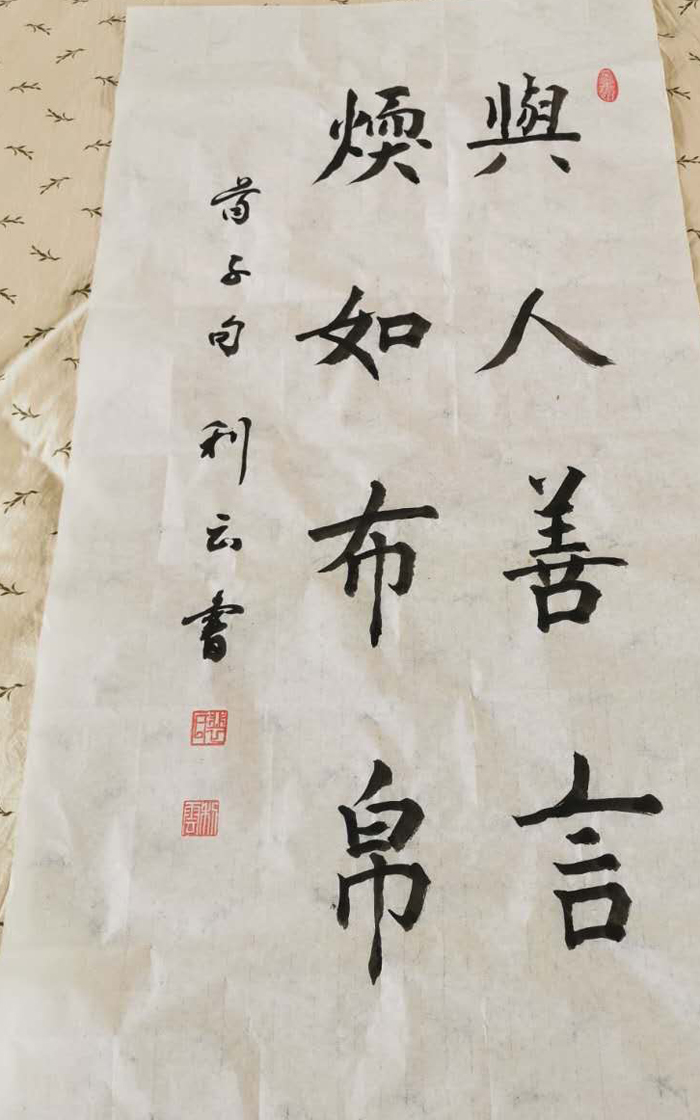 與人善言
煗如布帛
荀子句 利云書
利雲